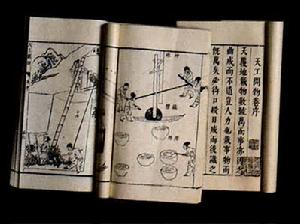 天工開物卷序
天覆地載物數號萬而事亦因之
曲成而不遺豈人力也哉事物而
既萬矣必待口授目成而後識之